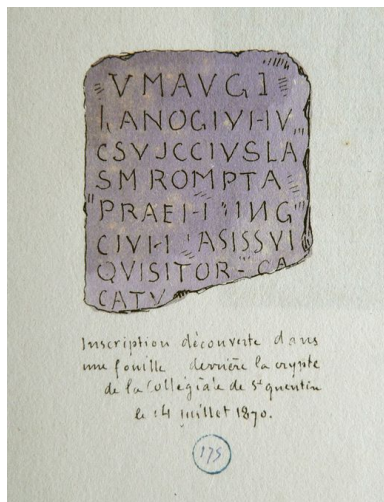 VMAVGI
IANOGIVI-IV
CSVJCCIVSLA
SM ROMPTA
PRAEI-I IING
CIVI-I ASISSVI
QVISITOR - CA
CATV
Inscription découverte dans
une fouille derrière la crypte
de la Collégiale de St quentin
le 14 juillet 1870.
175